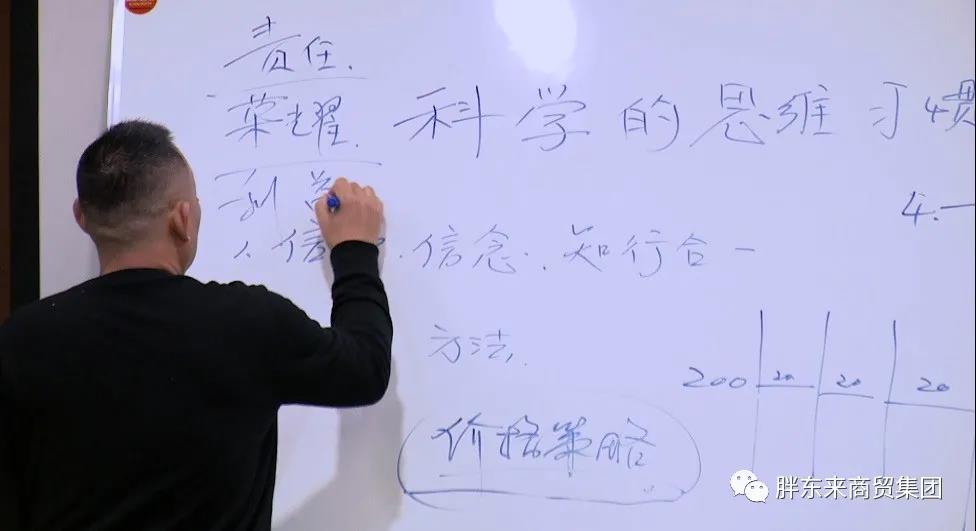 责任.
荣耀.
科学的思维习惯
利
4.一
1、信 . 信念. 知行合一
方法,
200 20 20 20
价格策略
胖东来商贸集团